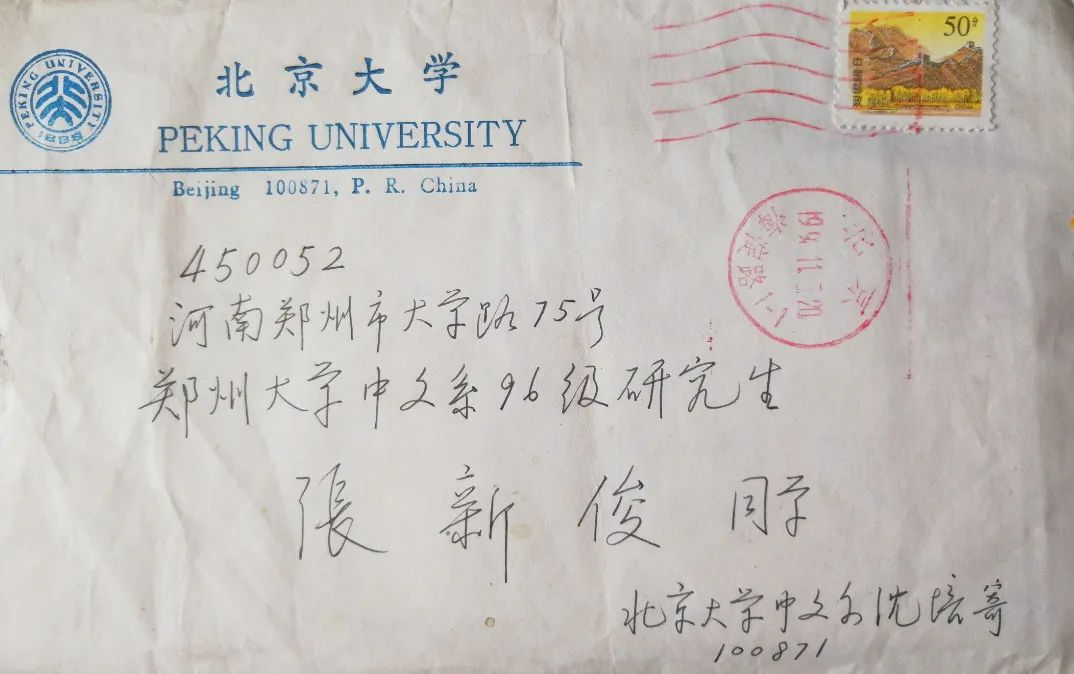 PEKING UNIVERSITY
1898
北京大学
PEKING UNIVERSITY
Beijing 100871, P. R. China
50分
中国邮政
北京
11
20
海淀路
450052
河南郑州市大学路75号
郑州大学中文系96级研究生
張新俊 同学
北京大学中文系沈培寄
100871